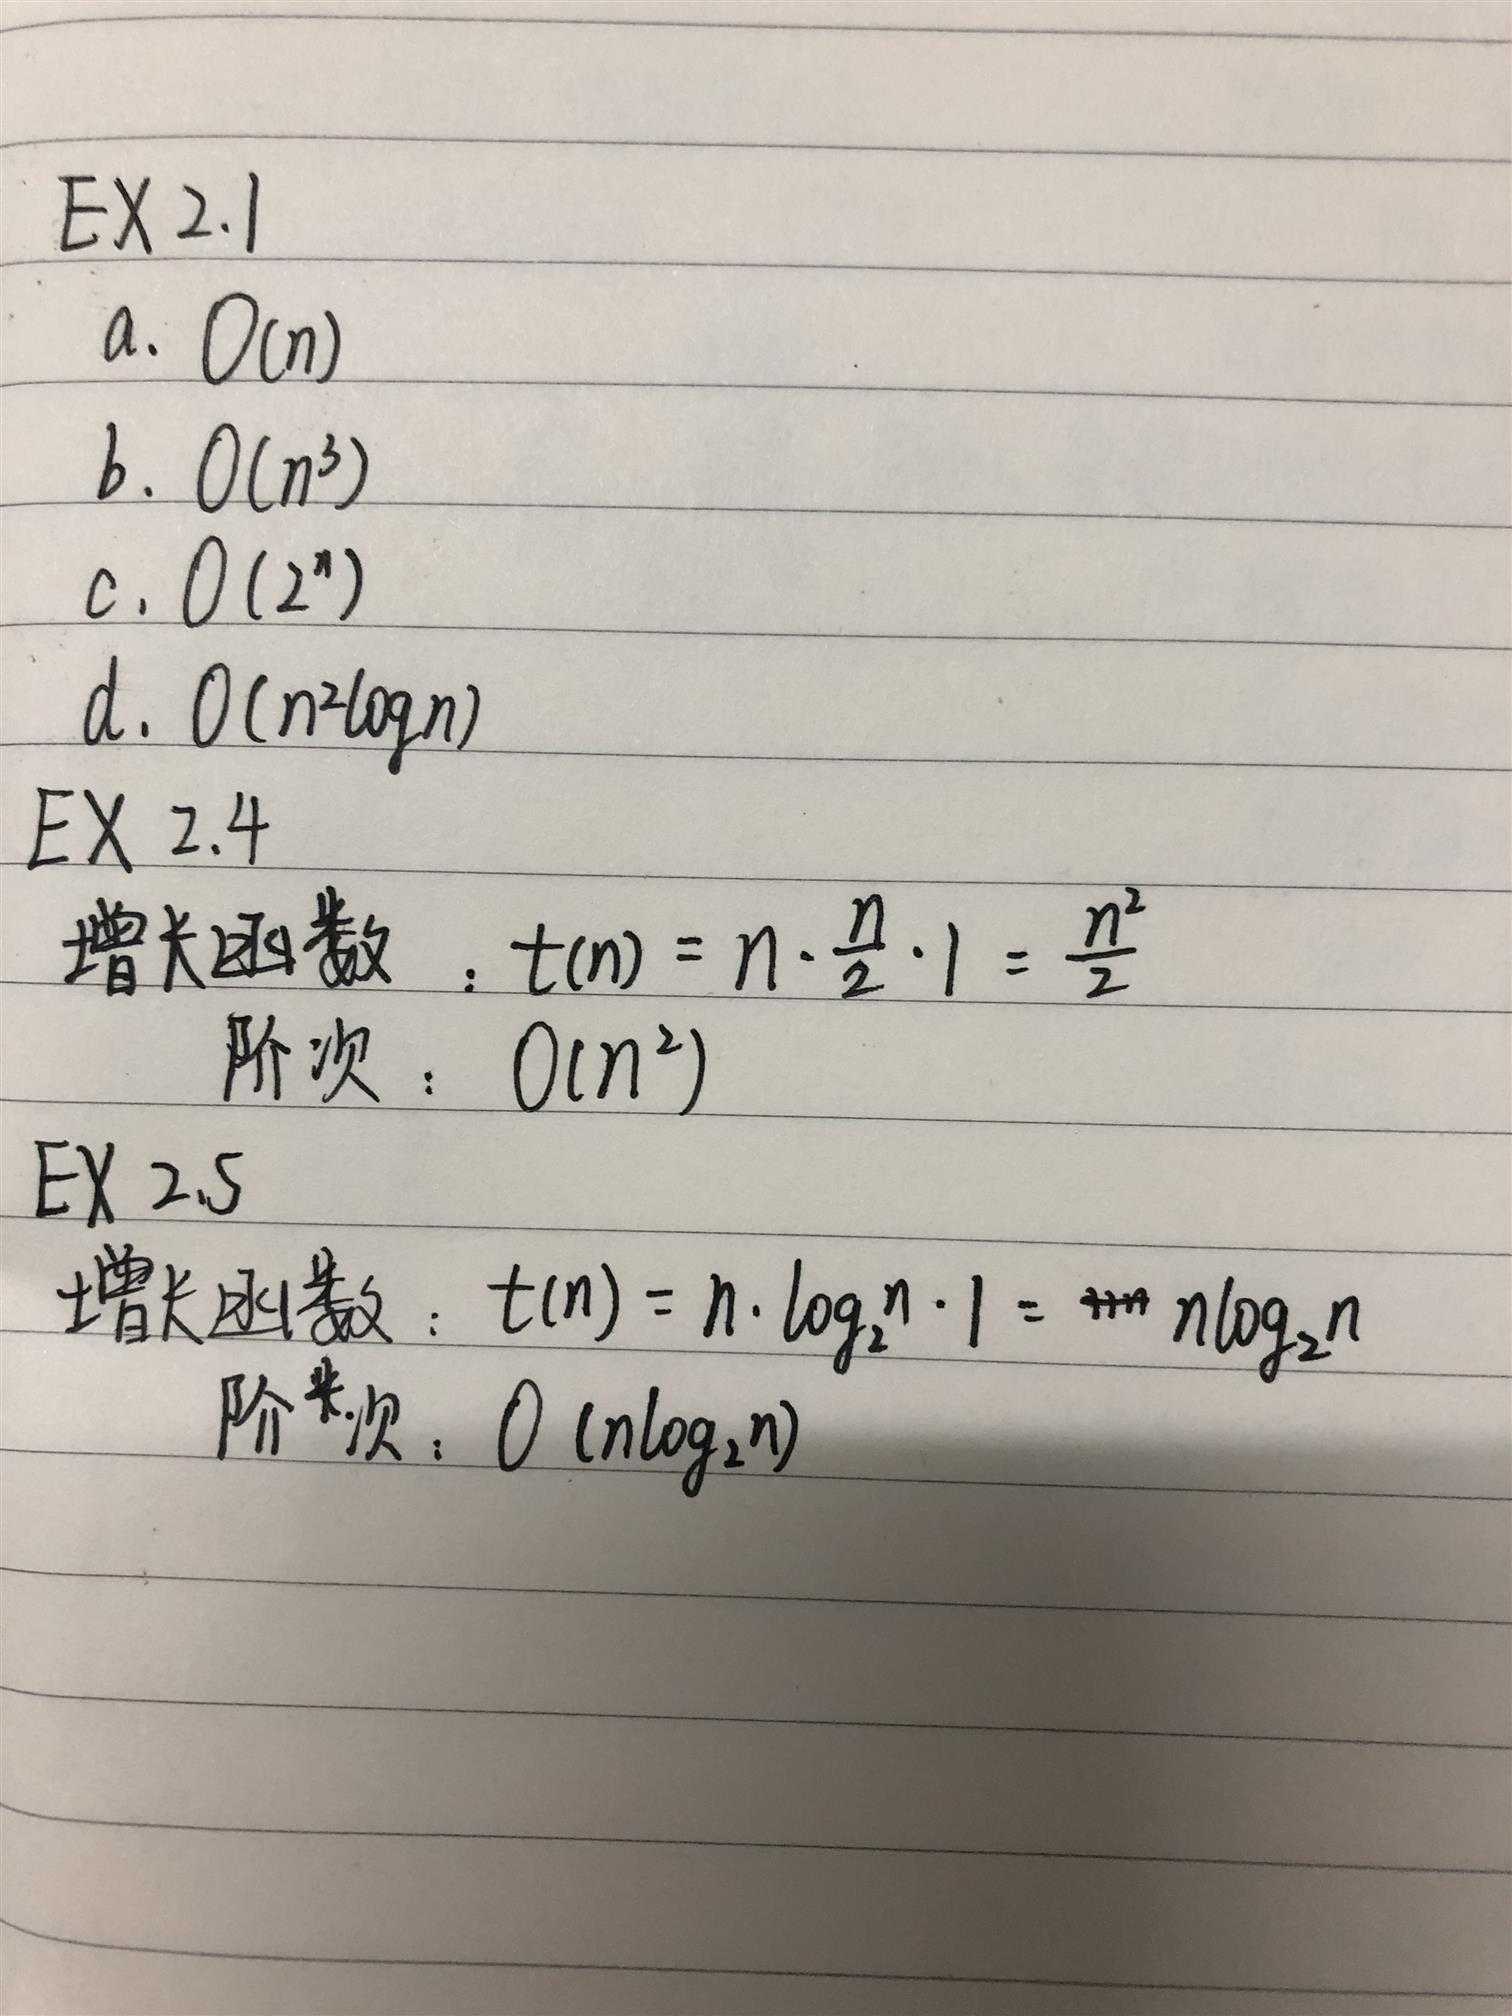 EX 2.1
a. O(n)
b. O(n³)
c. O(2ⁿ)
d. O(n²logn)
EX 2.4
增长函数：t(n) = n · n/2 · 1 = n²/2
阶次：O(n²)
EX 2.5
增长函数：t(n) = n · log₂n · 1 = nlog₂n
阶次：O (nlog₂n)